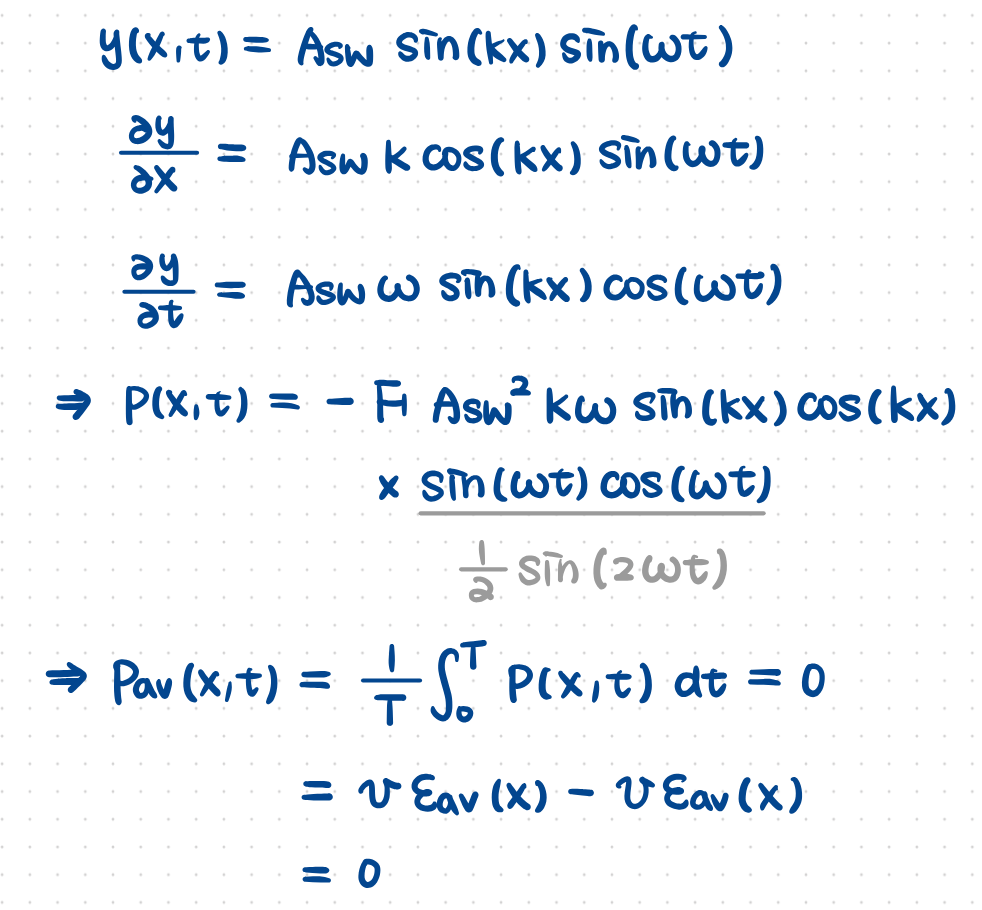 y(x,t) = Asw sin(kx) sin(ωt)
∂y/∂x = Asw k cos(kx) sin(ωt)
∂y/∂t = Asw ω sin(kx) cos(ωt)
⇒ P(x,t) = - F Asw² kω sin(kx) cos(kx)
× sin(ωt) cos(ωt)
1/2 sin(2ωt)
⇒ Pav(x,t) = 1/T ∫₀ᵀ P(x,t) dt = 0
= v εav(x) - v εav(x)
= 0